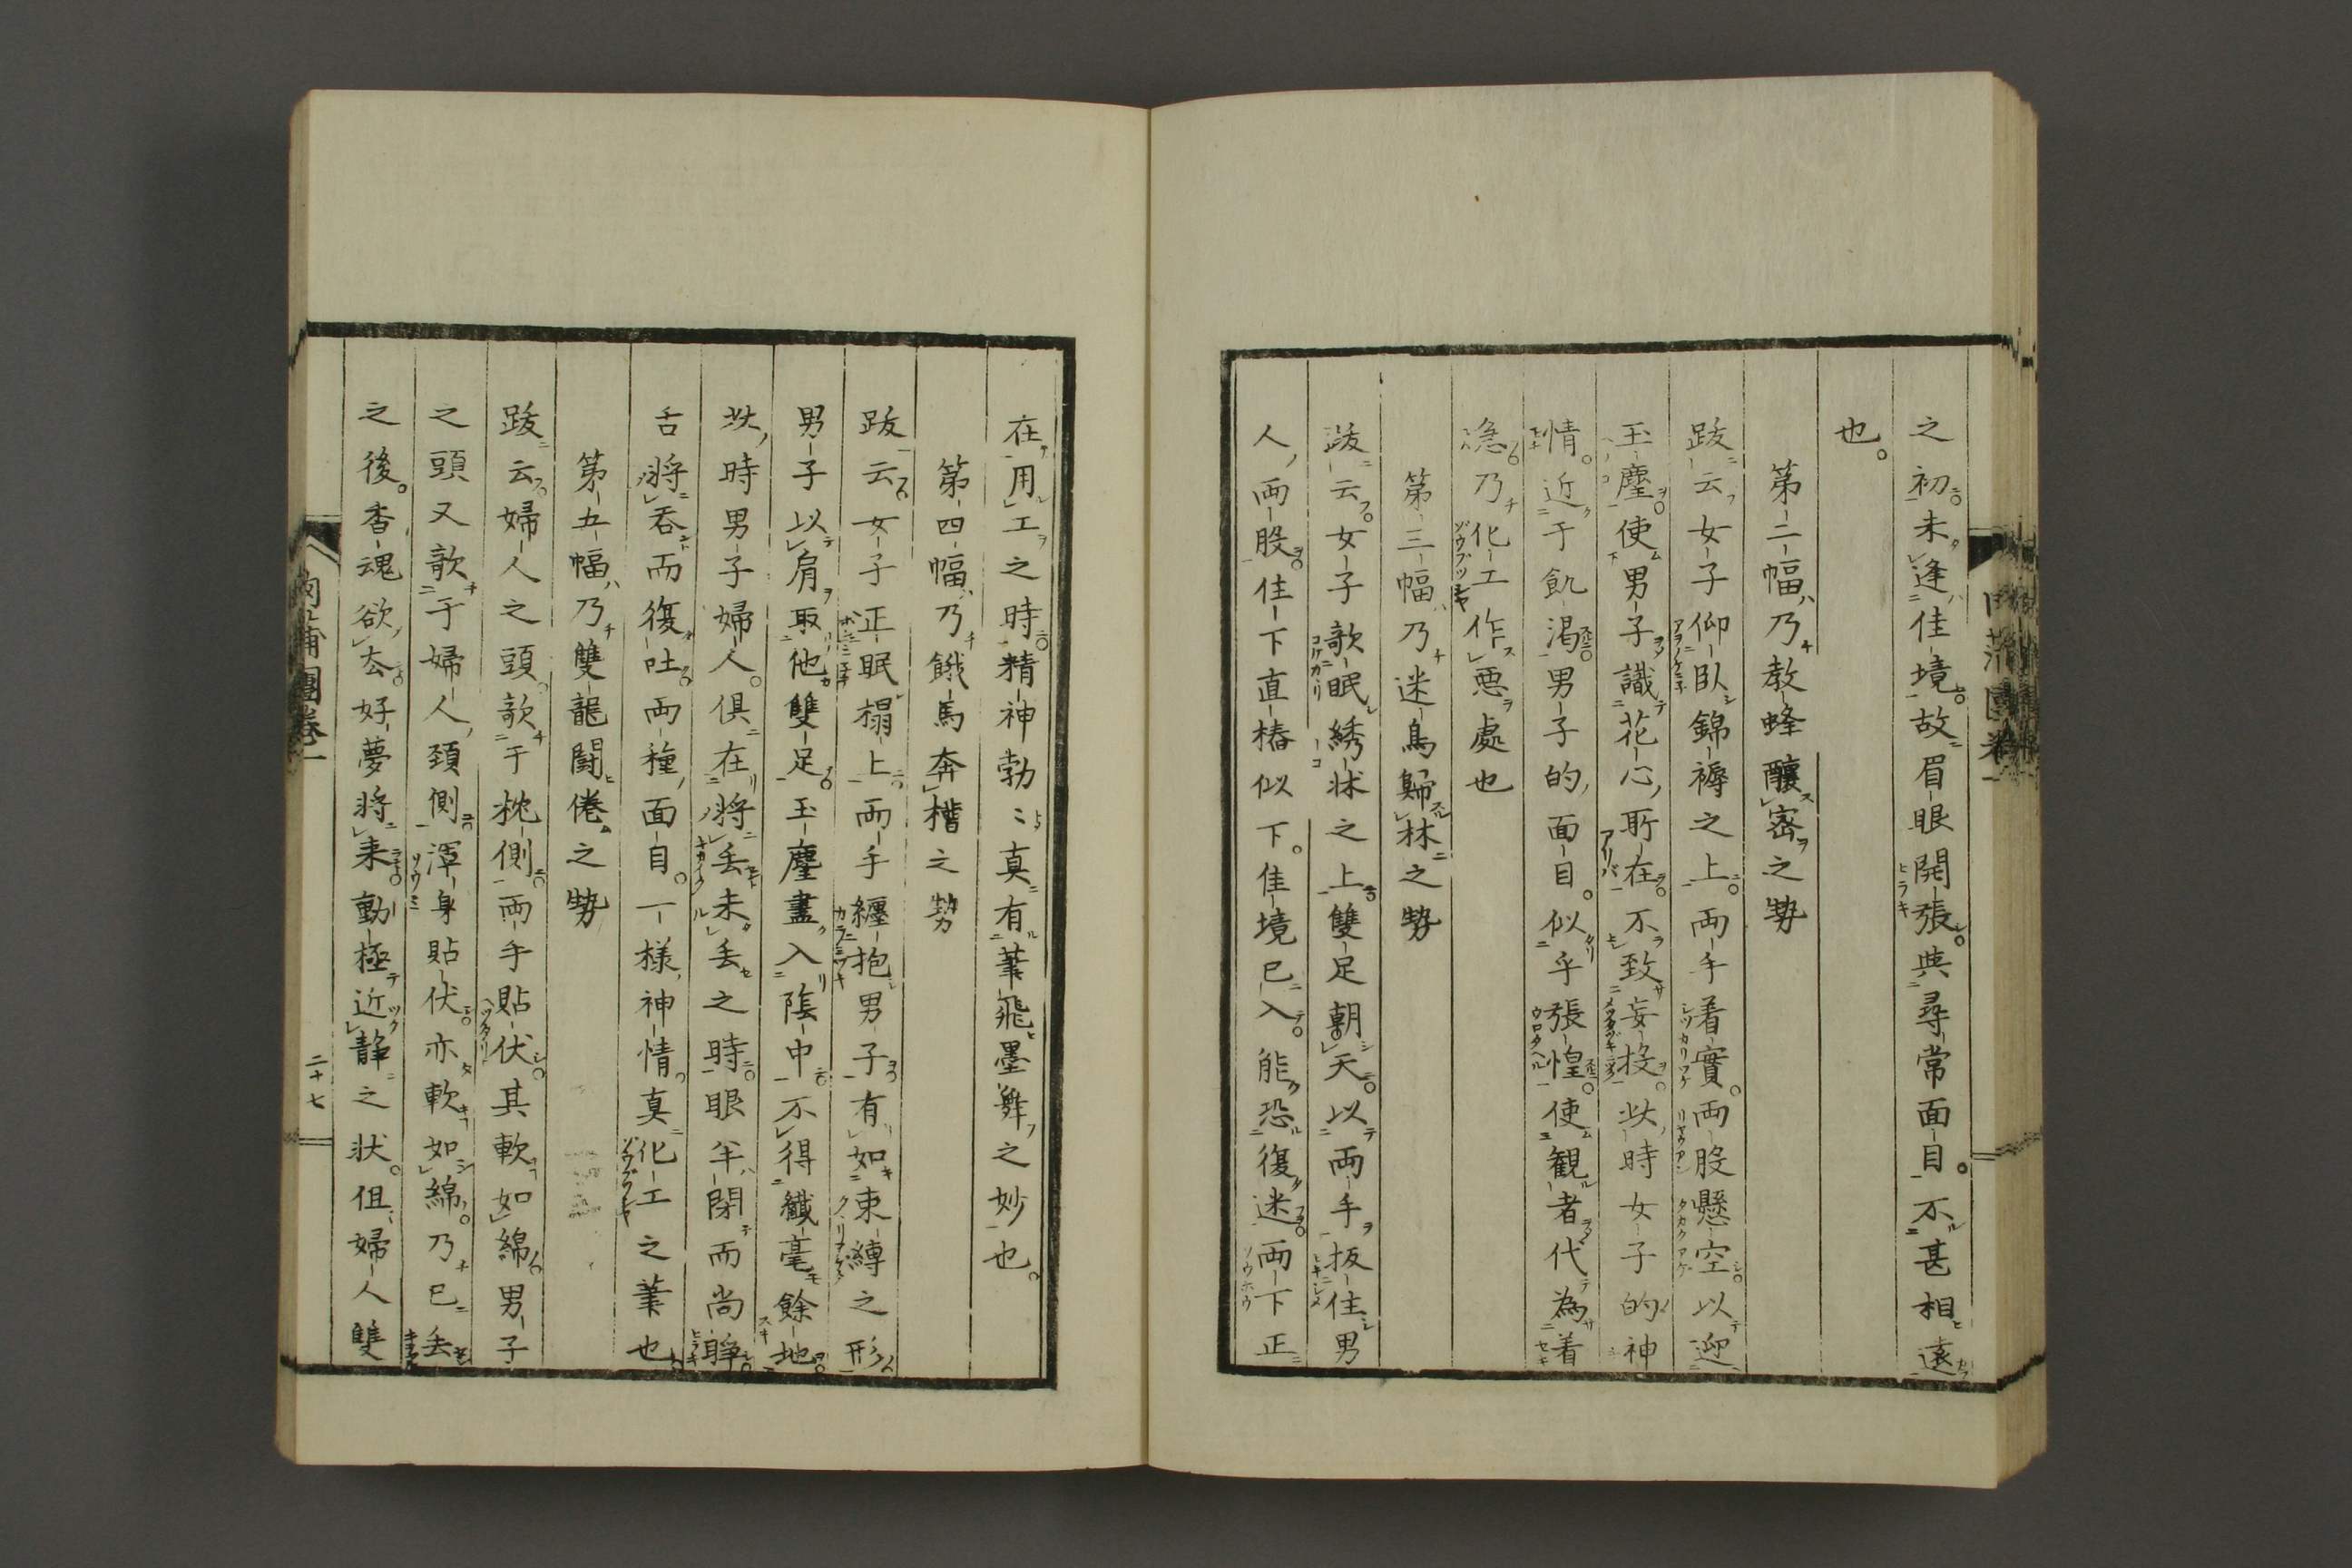 之初未逢佳境故眉眼開張與尋常面目。不甚相遠
也。
第二幅乃教蜂釀密之勢
跋云女子仰臥錦褥之上。兩手着實。兩股懸空。以迎
玉塵使男子識花心所在。不致妄投。此時女子的神
情。近于飢渇。男子的面目。似乎張惶。使観者代為着
急。乃化工作悪處也
第三幅乃迷鳥歸林之勢
跋云。女子歌眠綉牀之上。雙足朝天。以兩手扳住男
人兩股。住下直樁似下。佳境已入。能恐復迷。兩下正
在用工之時。精神勃〻真有筆飛墨舞之妙也。
第四幅乃餓馬奔槽之勢
跋云。女子正眠榻上。兩手纏抱男子。有如束縛之形
男子以肩取他雙足。玉塵盡入陰中。不得纖毫餘地。
此時男子婦人。俱在將丟未丟之時。眼半閉而尚睜。
舌將吞而復吐。兩種面目。一樣神情。真化工之筆也。
第五幅乃雙龍闘倦之勢
跋云。婦人之頭。歌于枕側。兩手貼伏。其軟如綿。男子
之頭又歌于婦人頚側。渾身貼伏。亦軟如綿。乃已丟
之後。香魂欲去。好夢將来。動極近静之状。但婦人雙
肉蒲團巻一
二十七
肉蒲團巻一